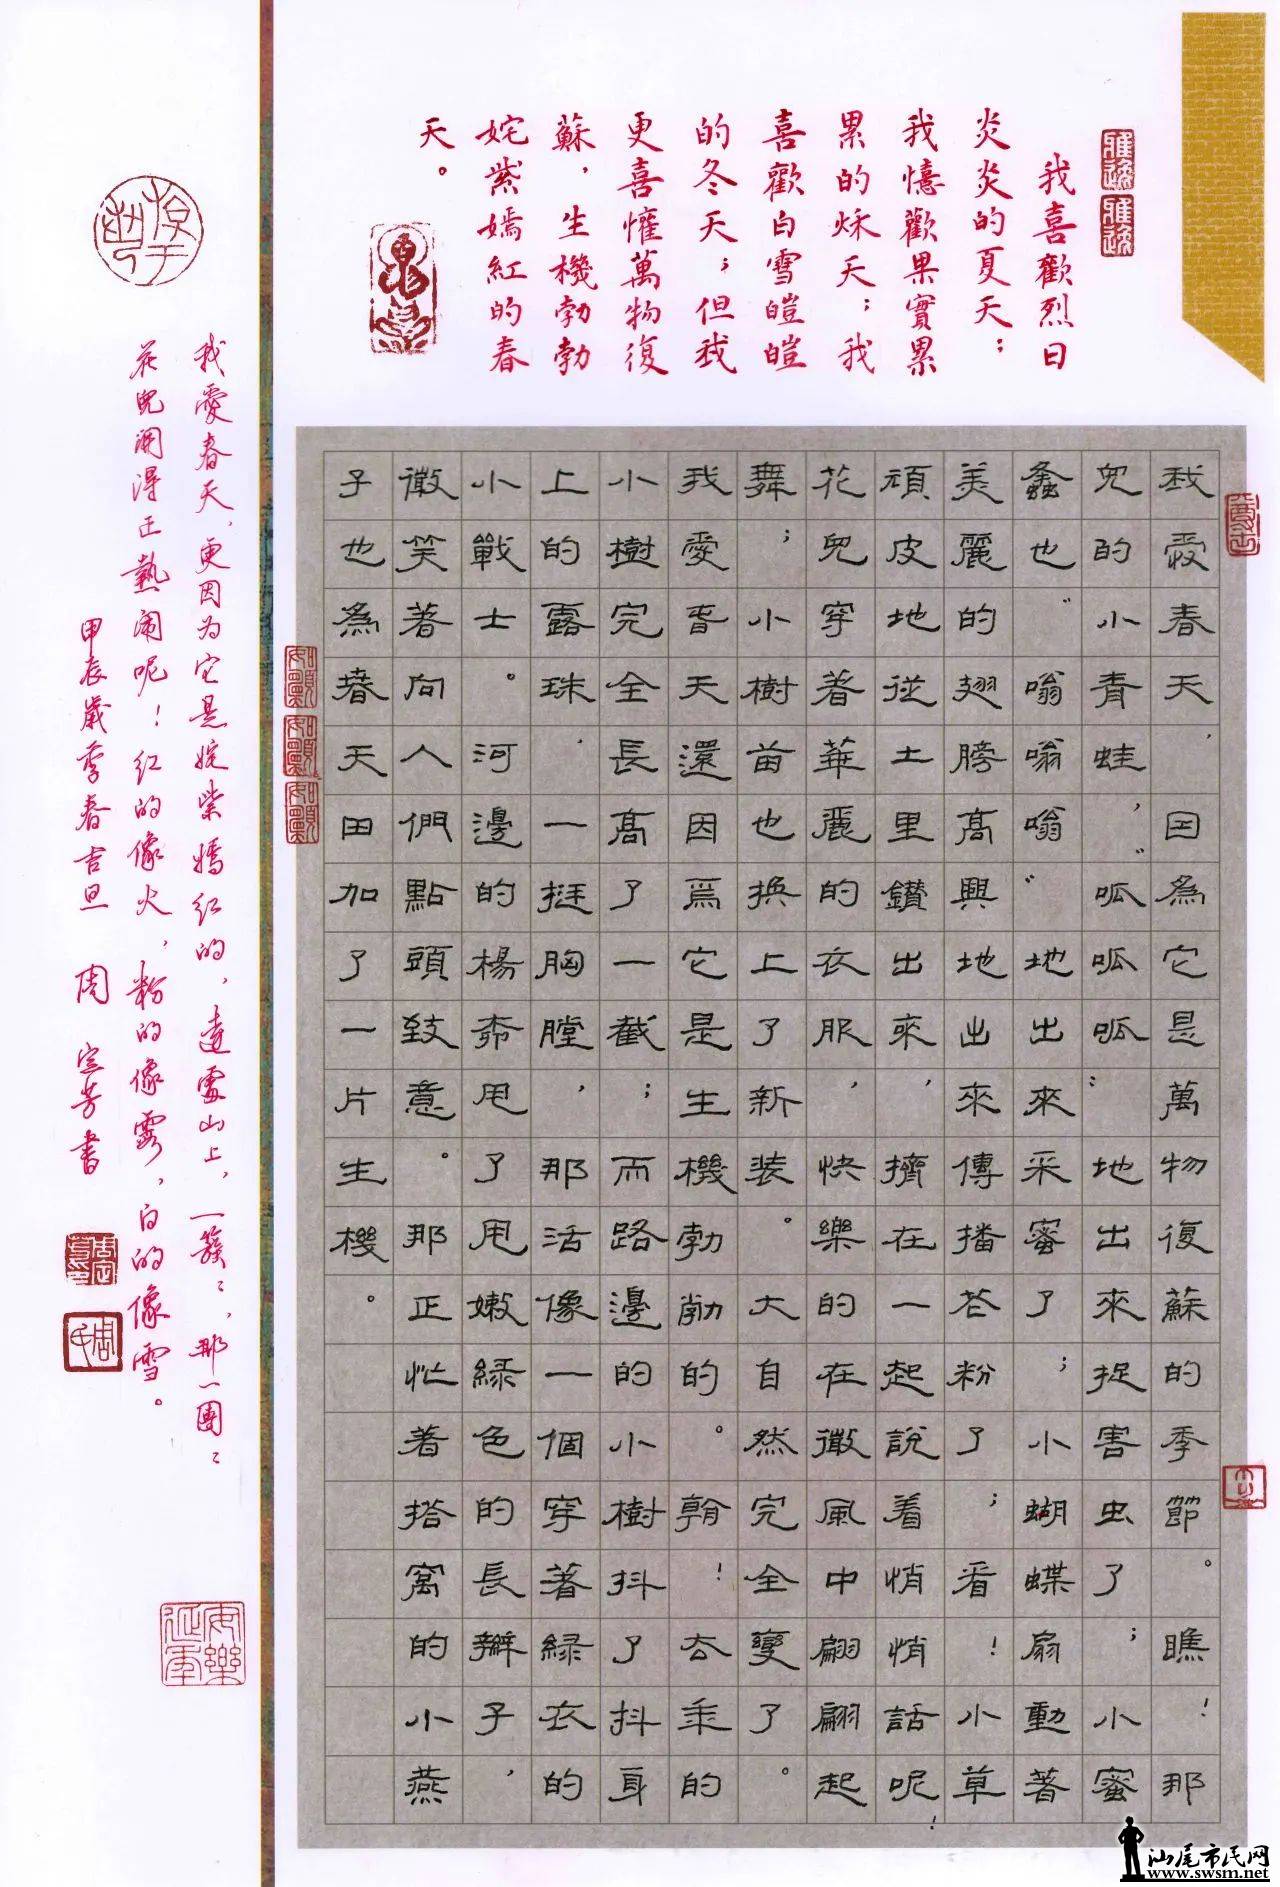 雅逸
雅逸
我喜歡烈日
炎炎的夏天；
我憘歡果實累
累的秌天；我
喜歡白雪皚皚
的冬天；但我
更喜懽萬物復
蘇，生機勃勃
姹紫嫣紅的春
天。
我愛春天，因為它是萬物復蘇的季節。瞧！那
兒的小青蛙，“呱呱呱”地出來捉害虫了；小蜜
蠭也“嗡嗡嗡”地出來采蜜了；小蝴蝶扇動著
美麗的翅膀高興地出來傳播花粉了；看！小草
頑皮地從土里鑽出來，擠在一起說着悄悄話呢！
花兒穿着華麗的衣服，快樂的在微風中翩翩起
舞；小樹苗也换上了新装。大自然完全變了。
我愛春天還因爲它是生機勃勃的。！厺秊的
小樹完全長高了一截；而路邊的小樹抖了抖身
上的露珠，一挺胸膛，那活像一個穿著綠衣的
小戰士。河邊的楊柳甩了甩嫩綠色的長辮子，
微笑著向人們點頭致意。那正忙着搭窩的小燕
子也為春天田加了一片生機。
如願
如願
如願
我愛春天，更因为它是姹紫嫣红的，遠處山上，一簇〻，那一團〻
花兒開得正熱闹呢！红的像火，粉的像霞，白的像雪。
甲辰歲季春吉旦 周定芳書
安樂延年
汕尾市民网
www.swsm.net